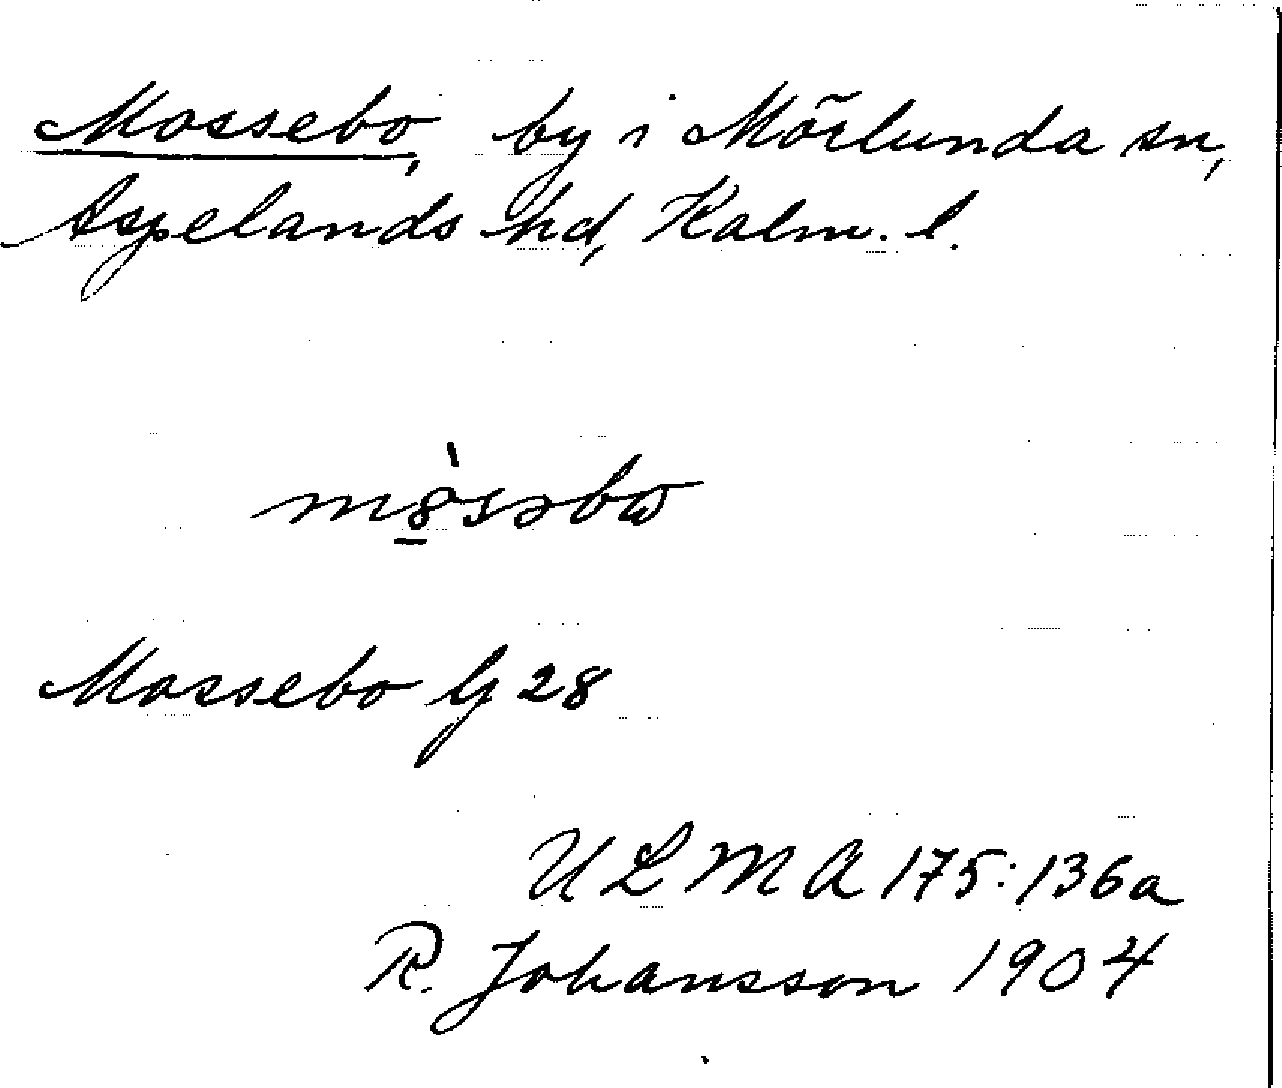 Mossebo, by i Mörlunda sn,
Aspelands hd, Kalm. l.
Mossebo G 28
ULMA 175:136a
R. Johansson 1904